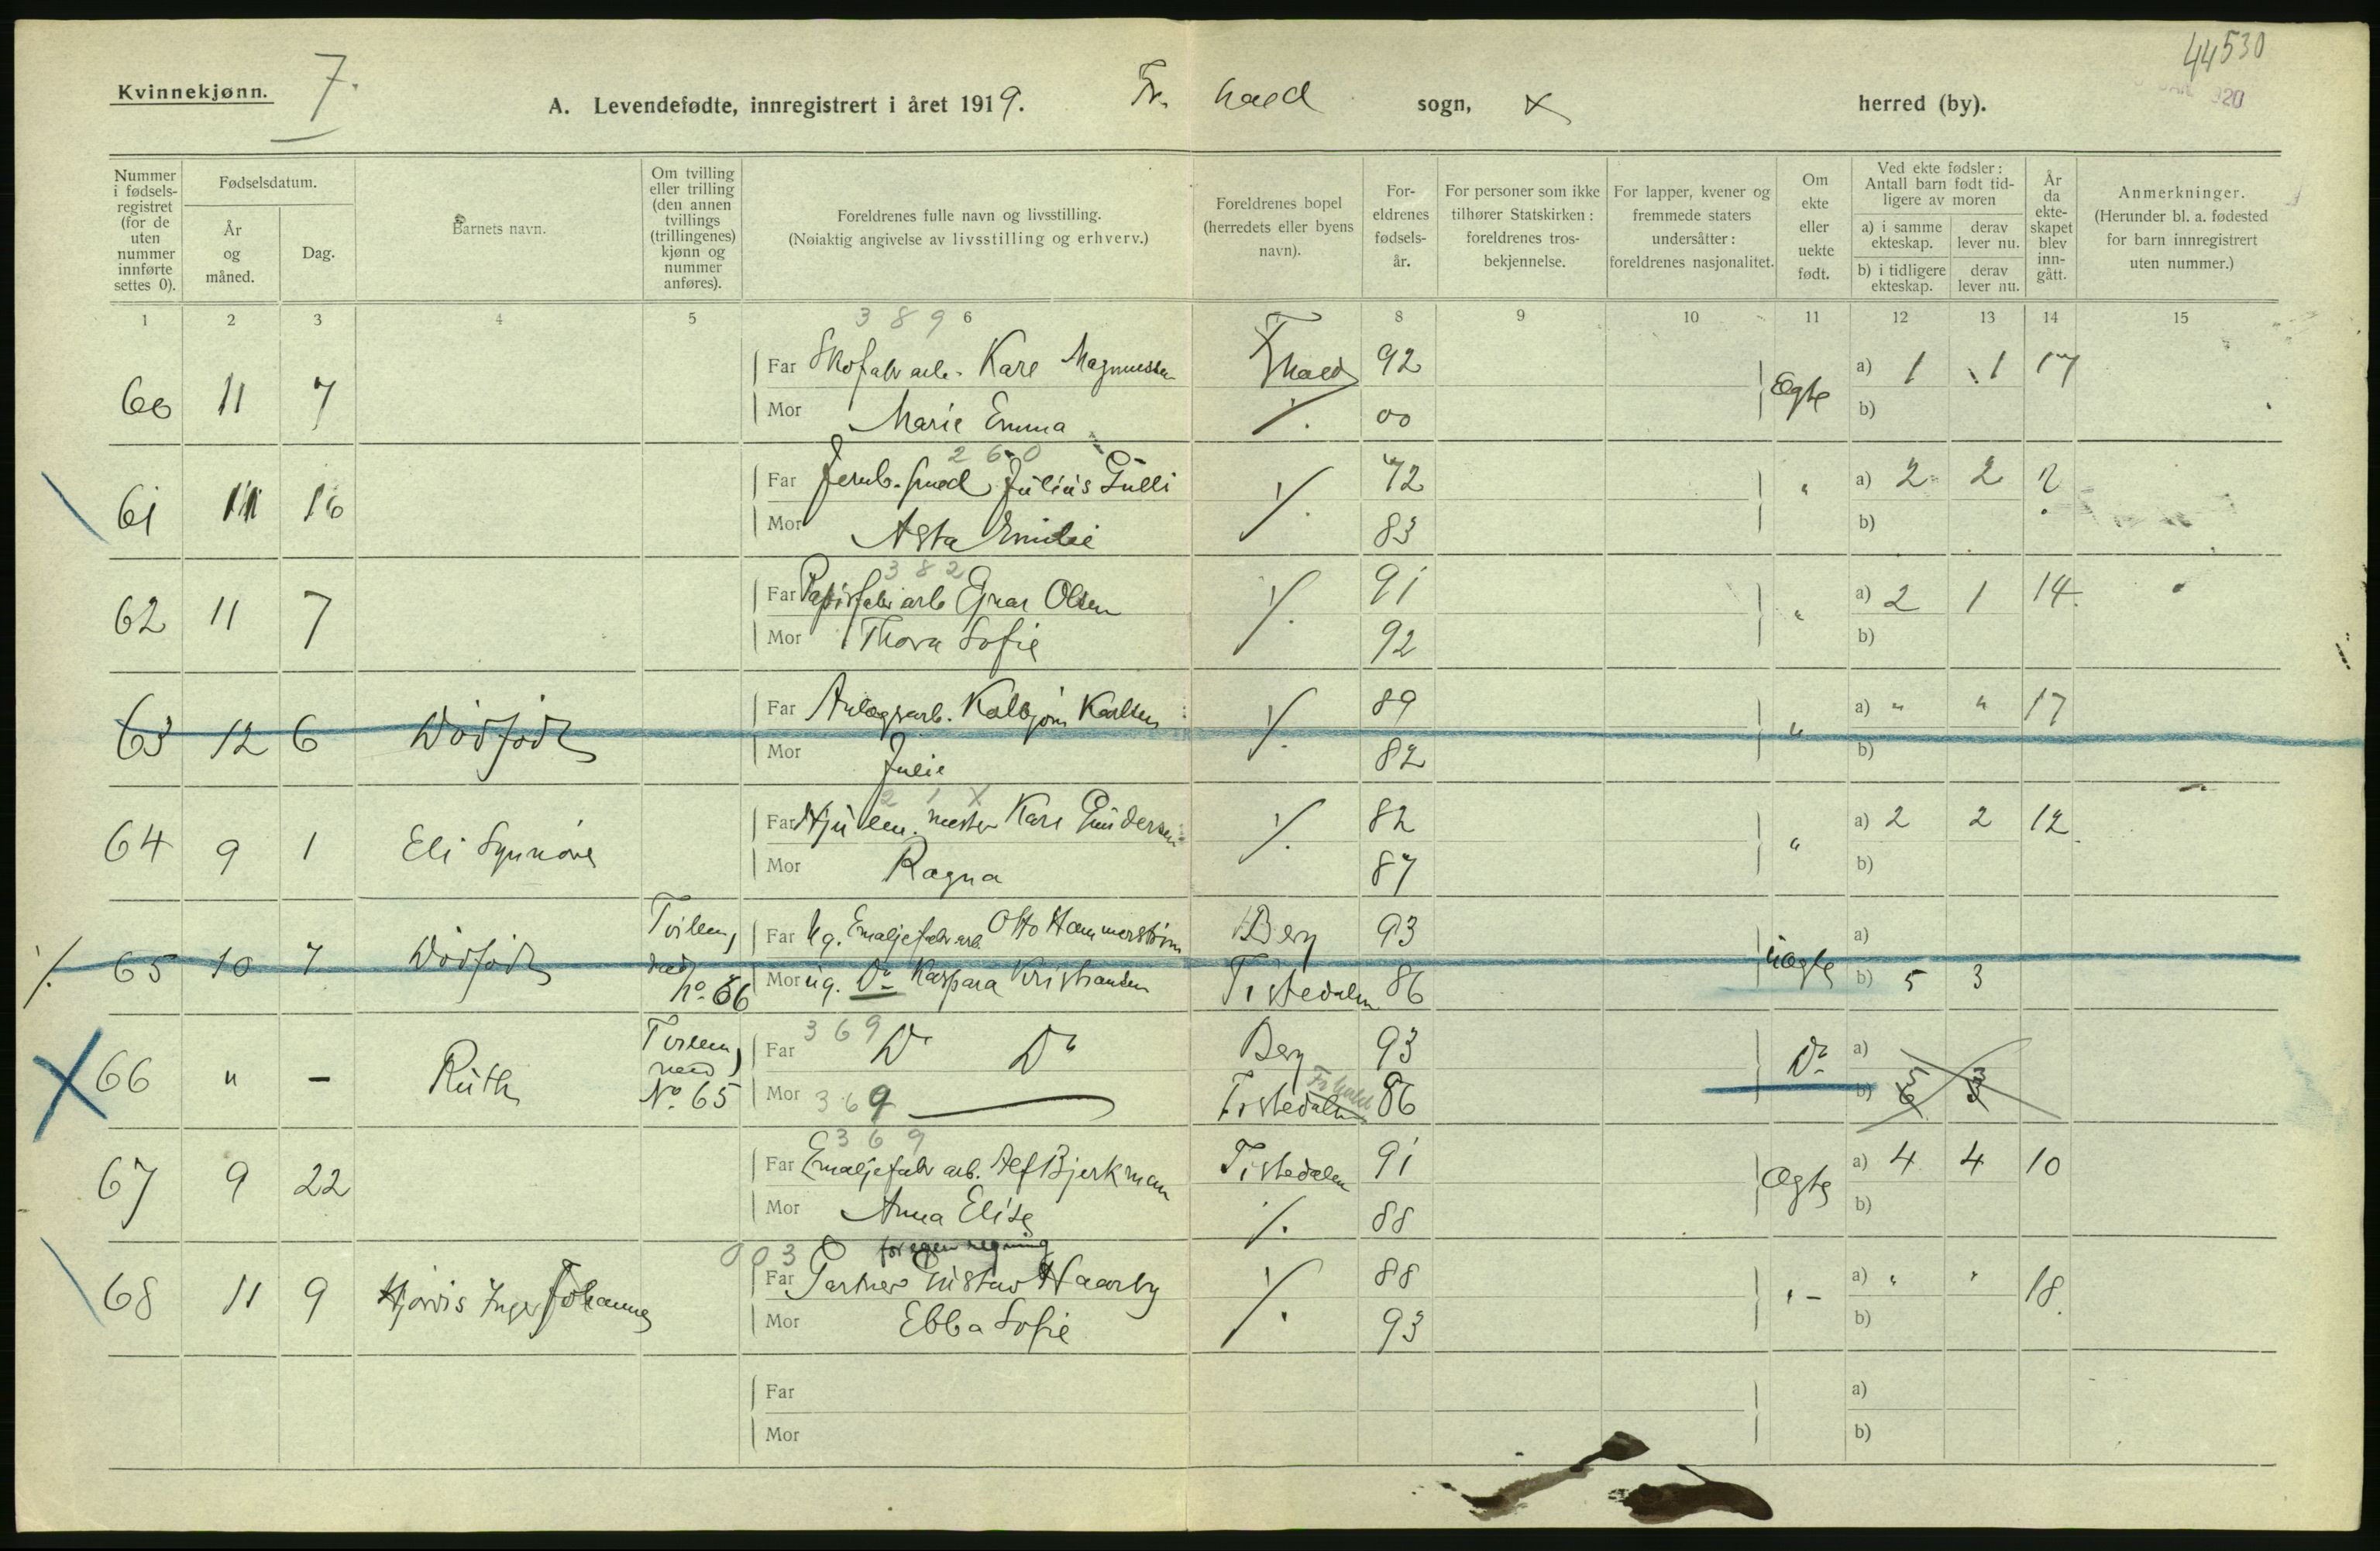 44530
Kvinnekjønn.
7.
A. Levendefødte, innregistrert i året 1919. Fr. hald sogn, herred (by).
Nummer i fødsels-registret (for de uten nummer innførte settes 0).
Fødselsdatum.
År og måned.
Dag.
Barnets navn.
Om tvilling eller trilling (den annen tvillings (trillingenes) kjønn og nummer anføres).
Foreldrenes fulle navn og livsstilling.
(Nøiaktig angivelse av livsstilling og erhverv.)
Foreldrenes bopel (herredets eller byens navn).
For-eldrenes fødsels-år.
For personer som ikke tilhører Statskirken: foreldrenes tros-bekjennelse.
For lapper, kvener og fremmede staters undersåtter: foreldrenes nasjonalitet.
Om ekte eller uekte født.
Ved ekte fødsler: Antall barn født tid-ligere av moren
a) i samme ekteskap.
derav lever nu.
b) i tidligere ekteskap.
derav lever nu.
År da ekte-skapet blev inn-gått.
Anmerkninger.
(Herunder bl. a. fødested for barn innregistrert uten nummer.)
1 2 3 4 5 6 8 9 10 11 12 13 14 15
389
60 11 7 Far Skofabr arb. Karl Magnussen Fhald 92 Ægte a) 1 1 17
Mor Marie Emma ./. 00 b)
260
61 11 16 Far Jernb. smed Julius Gulli ./. 72 " a) 2 2 ?
Mor Asta Emilie 83 b)
382
62 11 7 Far Papirfabr arb Ejnar Olsen ./. 91 " a) 2 1 14.
Mor Thora Sofie 92 b)
63 12 6 Dødfødt Far Anlægsarb. Kolbjørn Karlsen ./. 89 " a) " " 17
Mor Julie 82 b)
21X
64 9 1 Eli Synnøve Far Hjulm. mester Karl Gundersen ./. 82 " a) 2 2 12
Mor Ragna 87 b)
./. 65 10 7 Dødfødt Tvilling med No. 66 Far Ug. Emaljefabr arb. Otto Hammerstrøm Berg 93 uægte a)
Mor ug. Do Kaspara Kristiansen Tistedalen 86 b) 5 3
369
66 " - Ruth Tvilling med No. 65 Far Do Do Berg 93 Do a)
Mor 369 Tistedalen Frhald 86 b) 5 3
369
67 9 22 Far Emaljefabr arb. Alf Bjerkman Tistedalen 91 Ægte a) 4 4 10
Mor Anna Elise ./. 88 b)
003 for egen regning
68 11 9 Hjørdis Inger Johanne Far Gartner Gustav Haarby ./. 88 " - a) " " 18.
Mor Ebba Sofie 93 b)
Far a)
Mor b)